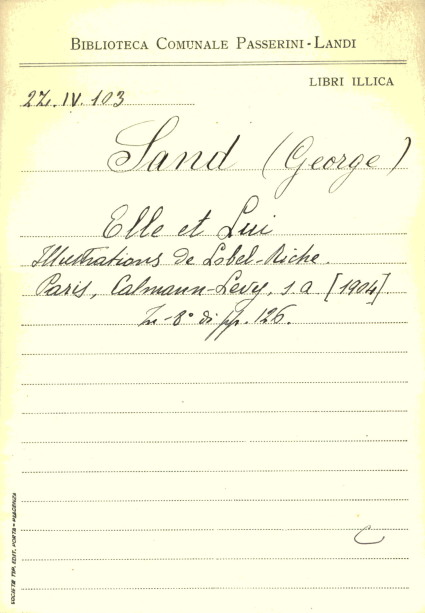 BIBLIOTECA COMUNALE PASSERINI-LANDI
LIBRI ILLICA
2Z. IV. 103
Sand (George)
Elle et Lui
Illustrations de Lobel-Riche.
Paris, Calmann-Levy, s. a [1904]
In-8° di pp. 126.
C
SOCIETÀ TIP. EDIT. PORTA - PIACENZA